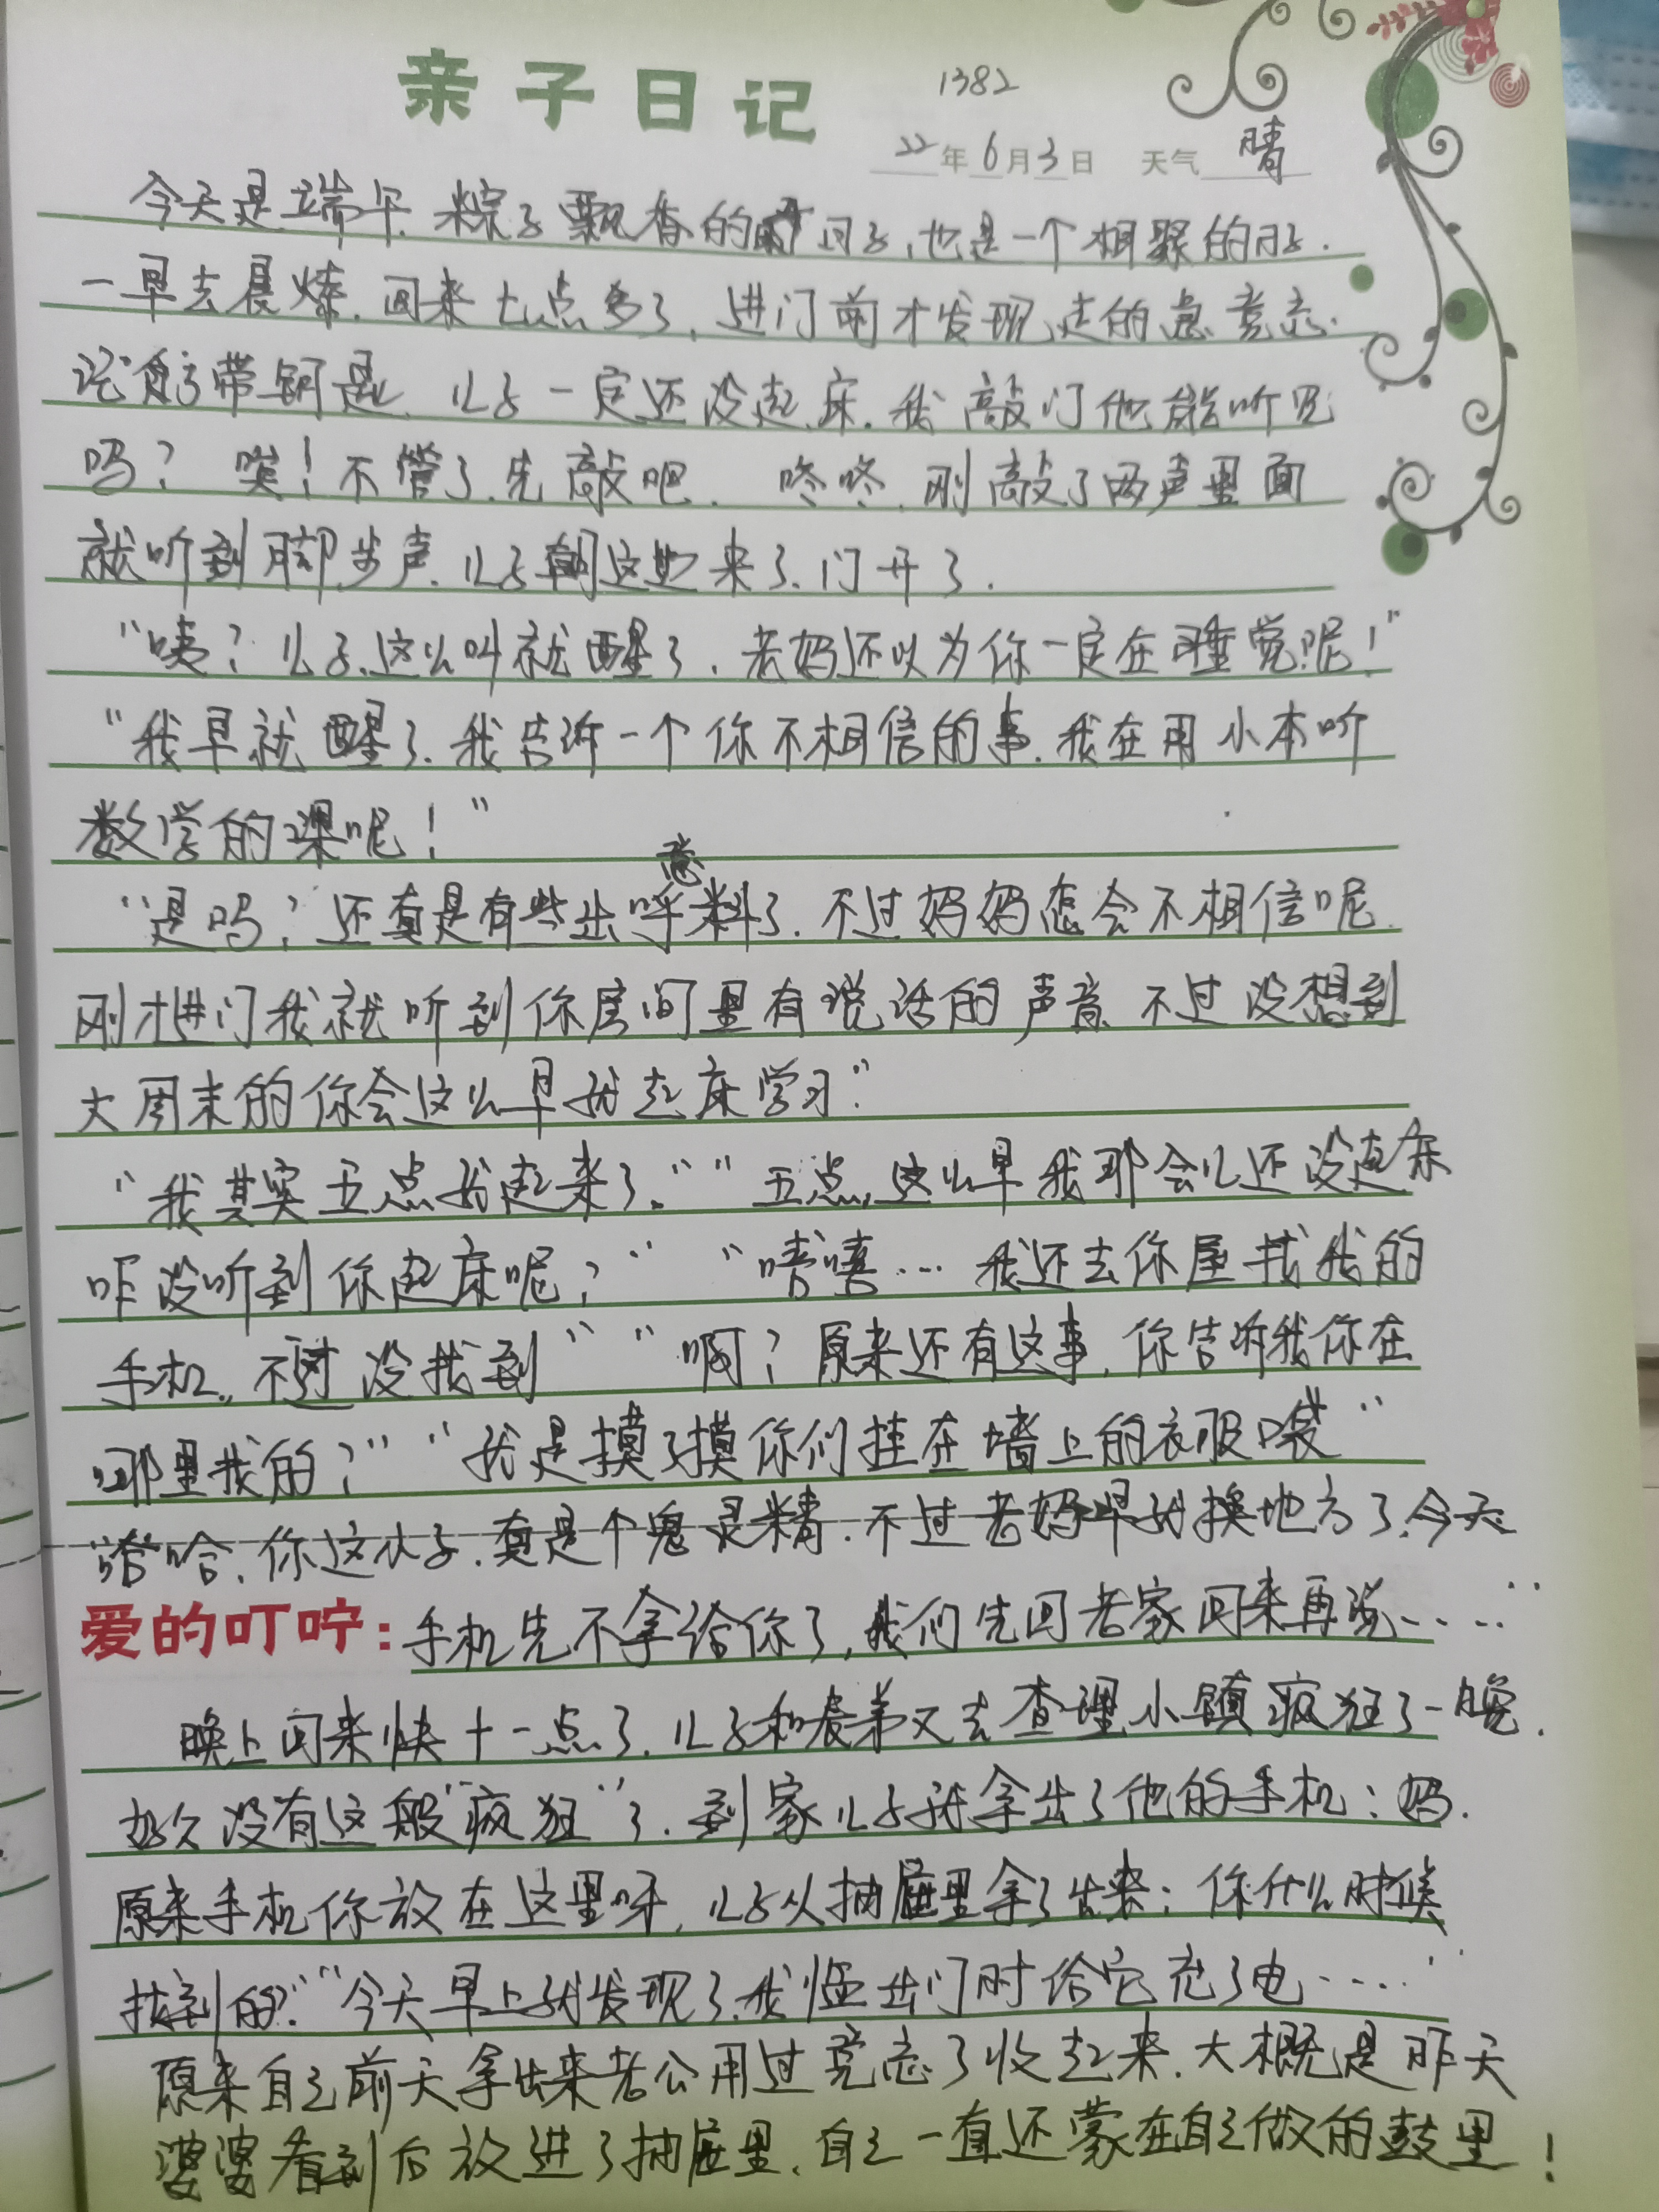 亲子日记
1382
22年6月3日 天气 晴
今天是端午.粽子飘香的日子,也是一个相聚的日子.
一早去晨炼.回来七点多了,进门前才发现走的急竟忘
记带钥匙.儿子一定还没起床.我敲门他能听见
吗?唉!不管了.先敲吧.咚咚.刚敲了两声里面
就听到脚步声.儿子朝这边来了.门开了.
“咦?儿子.这么叫就醒了.老妈还以为你一定在睡觉呢!”
“我早就醒了.我告诉一个你不相信的事.我在用小本听
数学的课呢!”
“是吗?还真是有些出乎意料了.不过妈妈怎会不相信呢.
刚才进门我就听到你房间里有说话的声音.不过没想到
大周末的你会这么早就起床学习”
“我其实五点就起来了.”“五点,这么早我那会儿还没起床
咋没听到你起床呢?”“嘻嘻…我还去你屋找我的
手机.不过没找到”“啊?原来还有这事,你告诉我你在
哪里找的?”“就是摸了摸你们挂在墙上的衣服口袋”
哈哈.你这小子.真是个鬼灵精.不过老妈早就换地方了.今天
爱的叮咛:手机先不拿给你了,我们先回老家回来再说……
晚上回来快十一点了.儿子和表弟又去查理小镇疯狂了一晚.
好久没有这般“疯狂”了.到家儿子就拿出了他的手机:妈.
原来手机你放在这里呀,儿子从抽屉里拿了出来:你什么时候
找到的?”“今天早上就发现了.我临出门时给它充了电……
原来自己前天拿出来老公用过竟忘了收起来.大概是昨天
婆婆看到后放进了抽屉里.自己一直还蒙在自己做的鼓里!